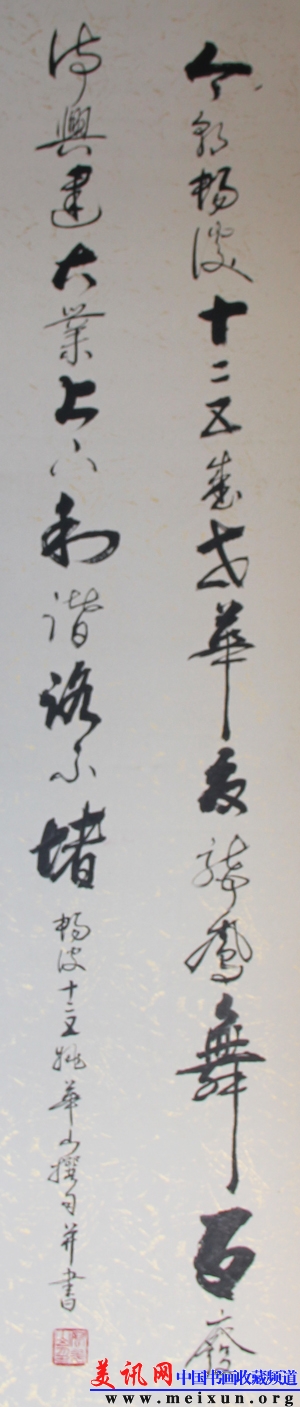 今朝暢談十二五盛世華夏龍鳳舞百廢
待興建大業上下和諧路不堵
暢談十二五姚華山撰句并書
美讯网 中国书画收藏频道
www.meixun.org